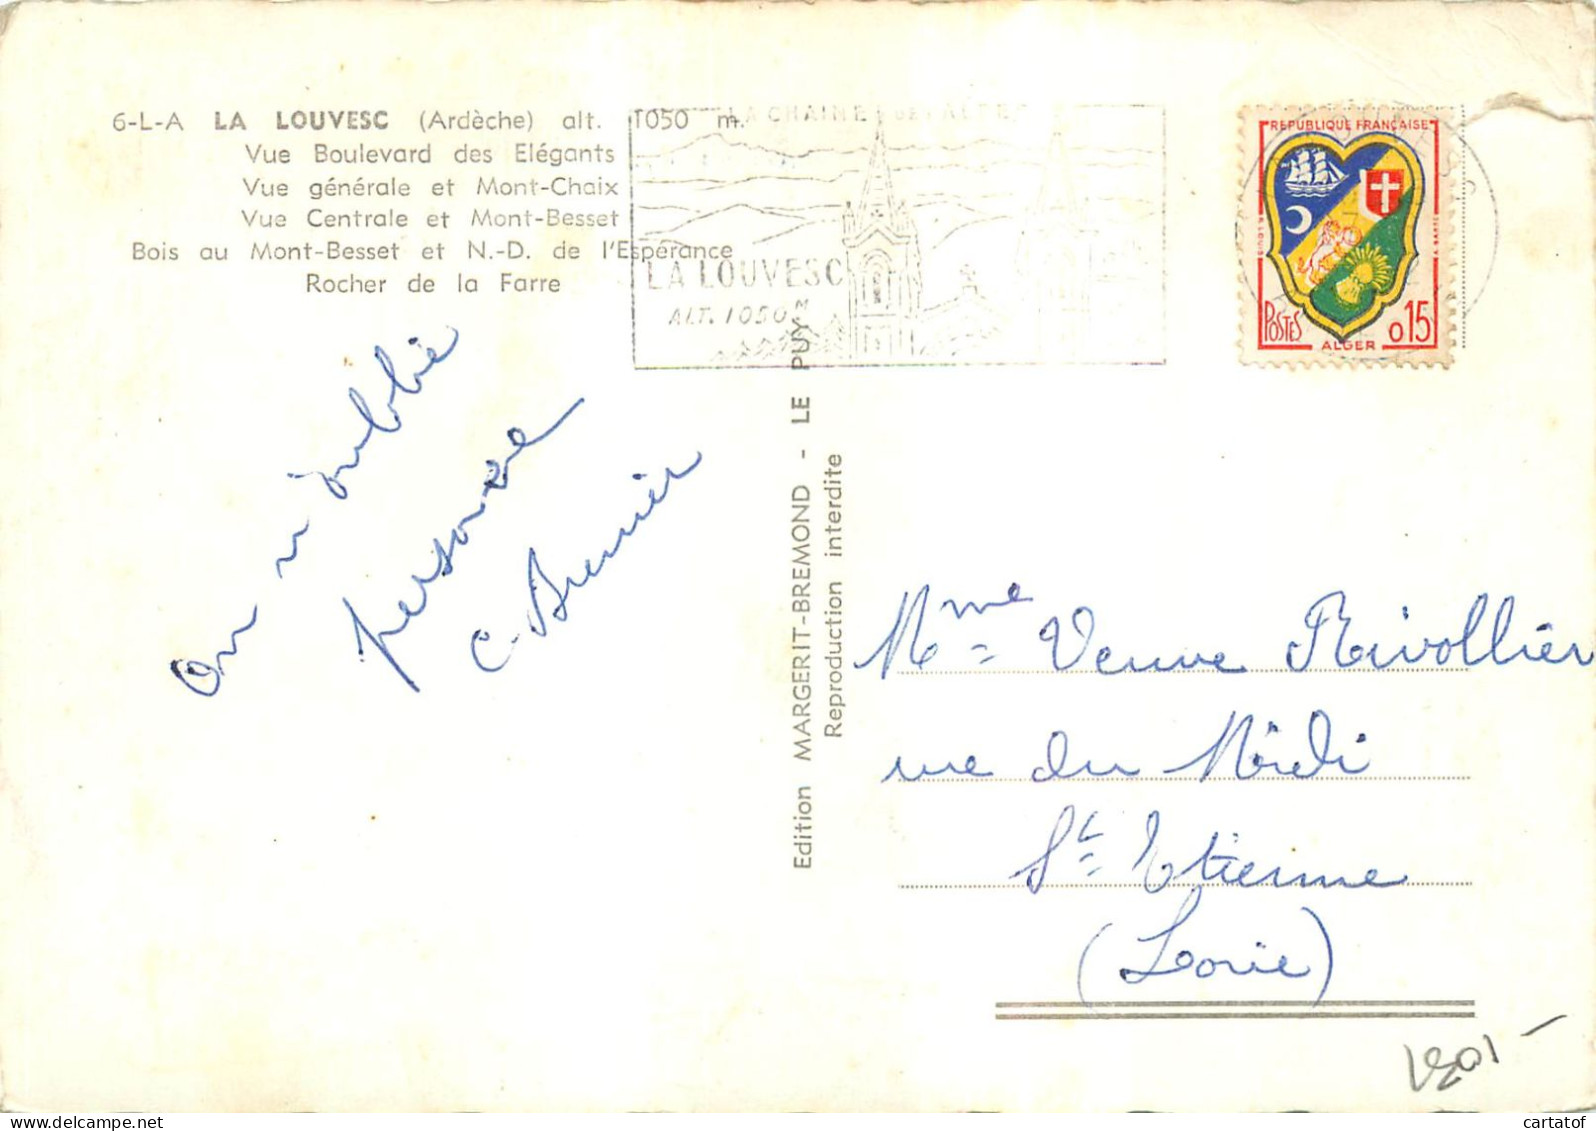 6-L-A LA LOUVESC (Ardèche) alt. 1050 m.
Vue Boulevard des Elégants
Vue générale et Mont-Chaix
Vue Centrale et Mont-Besset
Bois au Mont-Besset et N.-D. de l'Espérance
Rocher de la Farre
LA CHAINE DES ALPES
LA LOUVESC
ALT. 1050 M
REPUBLIQUE FRANÇAISE
POSTES
ALGER
0,15
On n'oublie
personne
C. Brenier
Edition MARGERIT-BREMOND - LE PUY
Reproduction interdite
Mme Veuve Rivollier
rue du Midi
St Etienne
(Loire)
cartatof